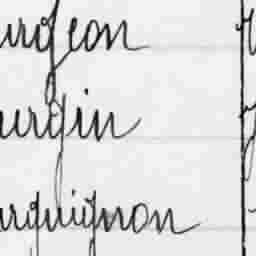 urgeon
urgin
urguignon